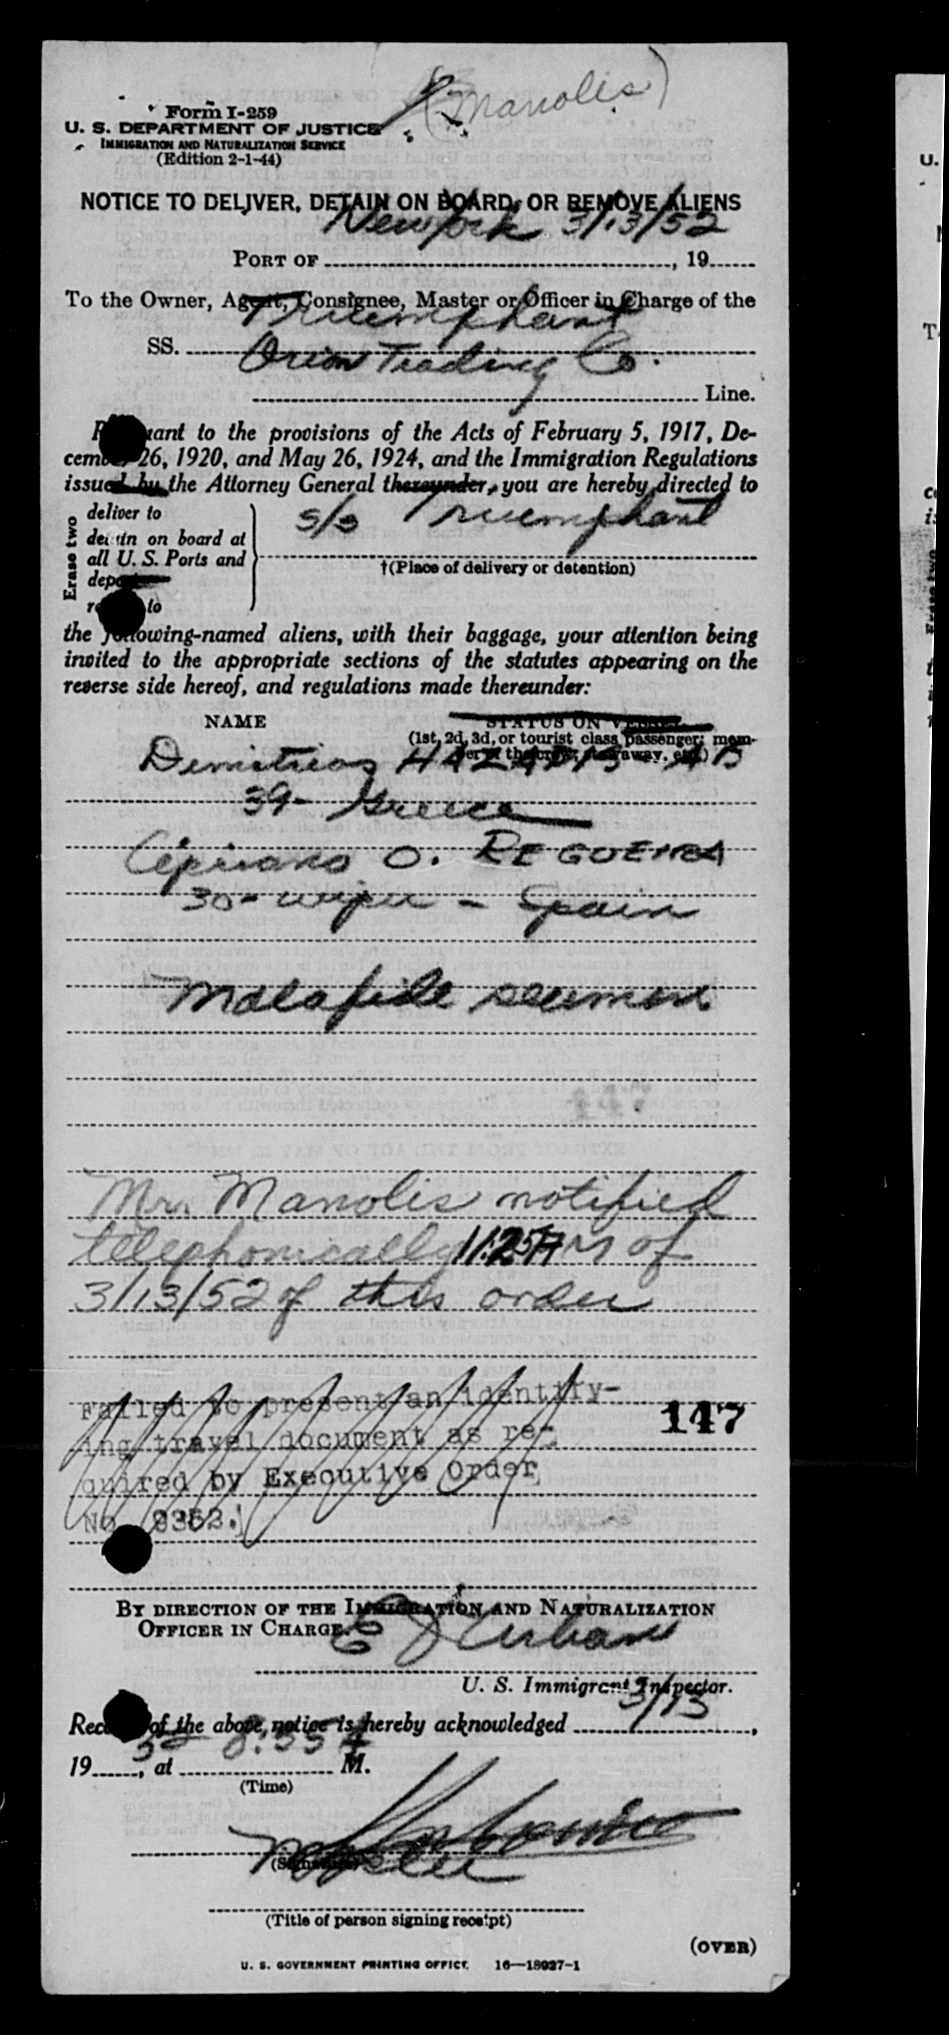 (Manolis)
Form I-259
U. S. DEPARTMENT OF JUSTICE
IMMIGRATION AND NATURALIZATION SERVICE
(Edition 2-1-44)
NOTICE TO DELIVER, DETAIN ON BOARD, OR REMOVE ALIENS
New York 3/13/52
PORT OF , 19
To the Owner, Agent, Consignee, Master or Officer in Charge of the
Triumphant
SS.
Orion Trading Co.
Line.
Pursuant to the provisions of the Acts of February 5, 1917, De-
cember 26, 1920, and May 26, 1924, and the Immigration Regulations
issued by the Attorney General thereunder, you are hereby directed to
Erase two
deliver to
detain on board at
all U. S. Ports and
deport
remove to
S/S Triumphant
†(Place of delivery or detention)
the following-named aliens, with their baggage, your attention being
invited to the appropriate sections of the statutes appearing on the
reverse side hereof, and regulations made thereunder:
NAME STATUS ON VESSEL
(1st, 2d, 3d, or tourist class passenger; mem-
ber of the crew, stowaway, etc.)
Demitrios AB
39- Greece
O. REGUEIRA
30- wiper - Spain
Malafide seamen
147
Mr. Manolis notified
telephonically 11:25 AM of
3/13/52 of this order
Failed to present an identify-
ing travel document as re-
quired by Executive Order
No. 8352.
147
BY DIRECTION OF THE IMMIGRATION AND NATURALIZATION
OFFICER IN CHARGE.
E J Urbans
U. S. Immigrant Inspector.
3/13
Receipt of the above notice is hereby acknowledged ,
52 8:55 A
19 , at M.
(Time)
(Signature)
(Title of person signing receipt)
(OVER)
U. S. GOVERNMENT PRINTING OFFICE 16—18927-1